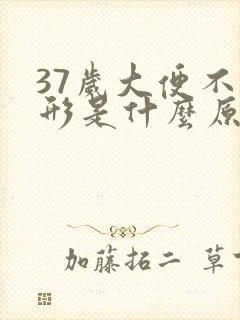 37歲大便不
形是什麼原
加藤拓二 草